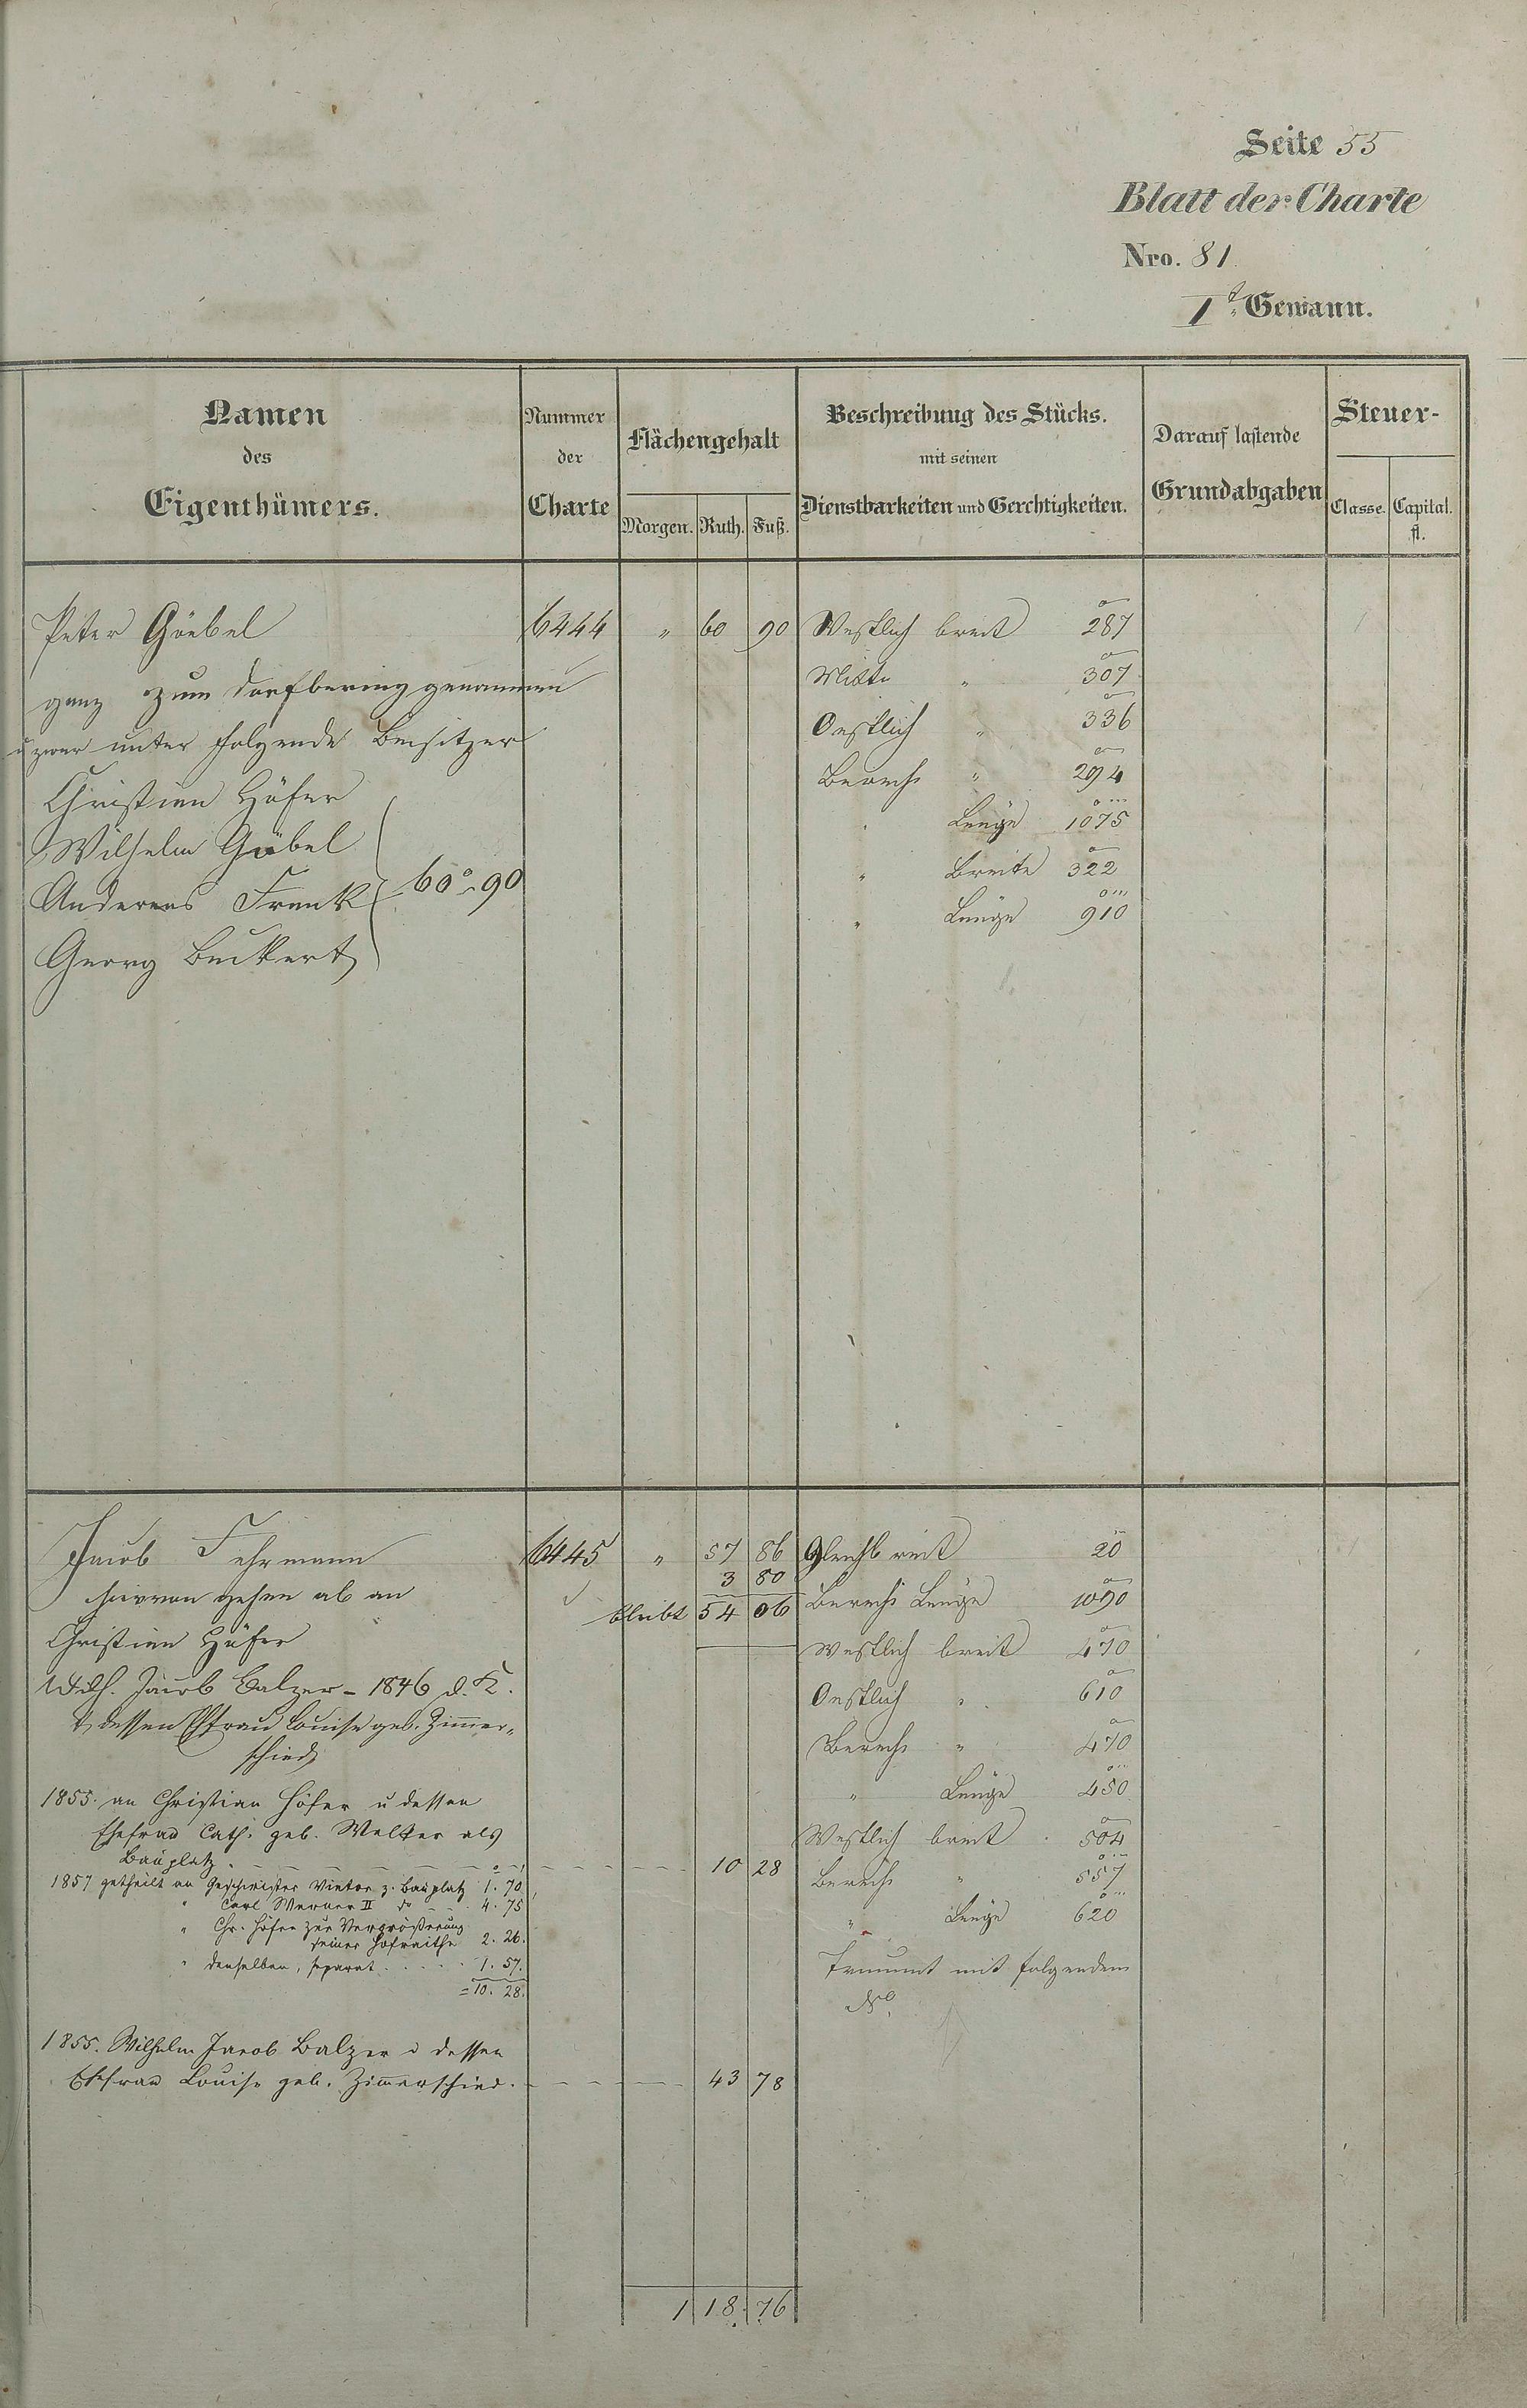 Seite 55
Blatt der Charte
Nro. 81
I t. Gewann.
Namen des Eigenthümers.
Nummer der Charte
Flächengehalt
Morgen. Ruth. Fuß.
Beschreibung des Stücks. mit seinen Dienstbarkeiten und Gerchtigkeiten.
Darauf lastende Grundabgaben
Steuer-
Classe. Capital. fl.
Peter Göebel 6444 " 60 90 Westlich breit 287
ganz zum Dorfbering genommen Mitte " 307
u zwar unter folgende Besitzer Oestlich " 336
Christian Höfer " 294
Wilhelm Göbel Länge 1075
Andereas Frank 60° 90 " Breite 322
Georg Buckert " Länge 910
Jacob Fehrmann 6445 " 57 86 Gleichbreit 20
3 80
hiervon gehen ab an bleibt 54 06 Länge 1090
Christian Höfer Westlich breit 470
Wilh. Jacob Balzer - 1846 d. K. Oestlich " 610
u dessen Ehfrau Louise geb. Zimmer- " 470
schied
1855. an Christian Höfer u dessen " Länge 450
Ehefrau Cath. geb. Welker als Westlich breit 504
Bauplatz 10 28 " 557
1857 getheilt an Geschwister Vietor z. Bauplatz 1. 70
" Carl Werner II do 4. 75 " Länge 620
" Chr. Höfer zur Vergrößerung
seiner Hofraithe 2. 26.
" denselben, separat 1. 57. mit folgendem
= 10. 28. No
1855. Wilhelm Jacob Balzer u dessen
Ehefrau Louise geb. Zimmerschied. 43 78
1 18 76